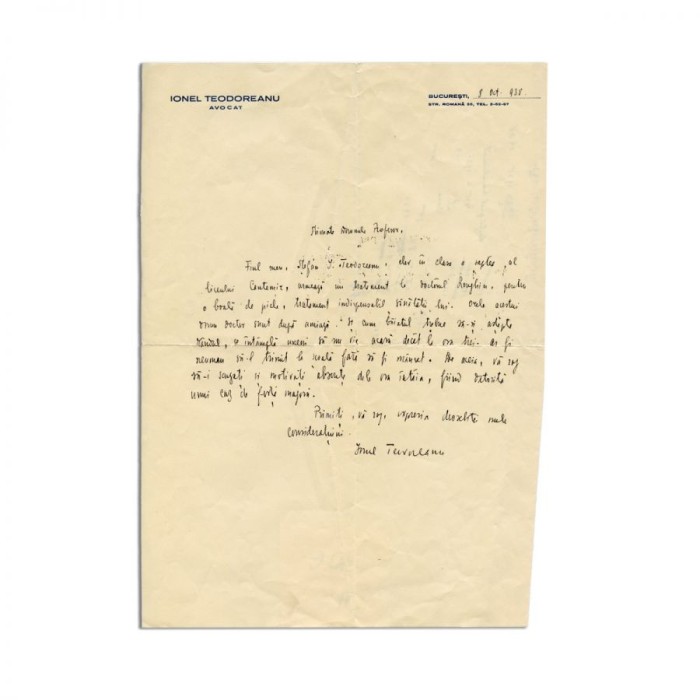 IONEL TEODOREANU
AVOCAT
BUCUREȘTI, 8 Oct. 938
STR. ROMANĂ
Stimate Domnule Profesor,
Fiul meu, Ștefan I. Teodoreanu, elev în clasa a șaptea, al
liceului Cantemir, urmează un tratament la doctorul pentru
o boală de piele, tratament indispensabil sănătății lui. Orele acestui
domn doctor sunt după amiază. Și cum băiatul trebue să-și aștepte
rândul, se întâmplă uneori să nu vie acasă decât la ora trei. Ar fi
neuman să-l trimit la școală fără să fi mâncat. De aceia, vă rog
să-i scuzați și motivați absențele dela ora întâia, fiind datorite
unui caz de forță majoră.
Primiți, vă rog, expresia deosebitei mele
considerațiuni.
Ionel Teodoreanu